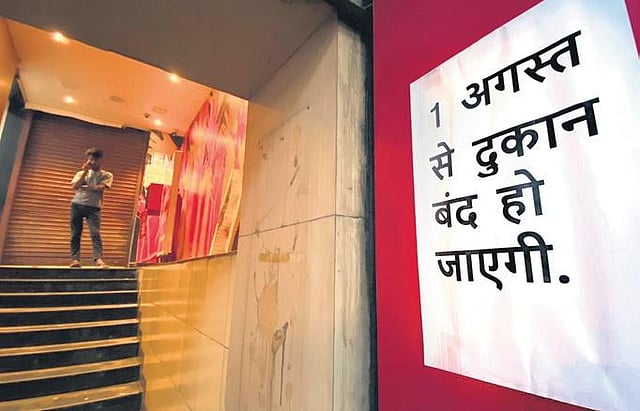 1 अगस्त
से दुकान
बंद हो
जाएगी.